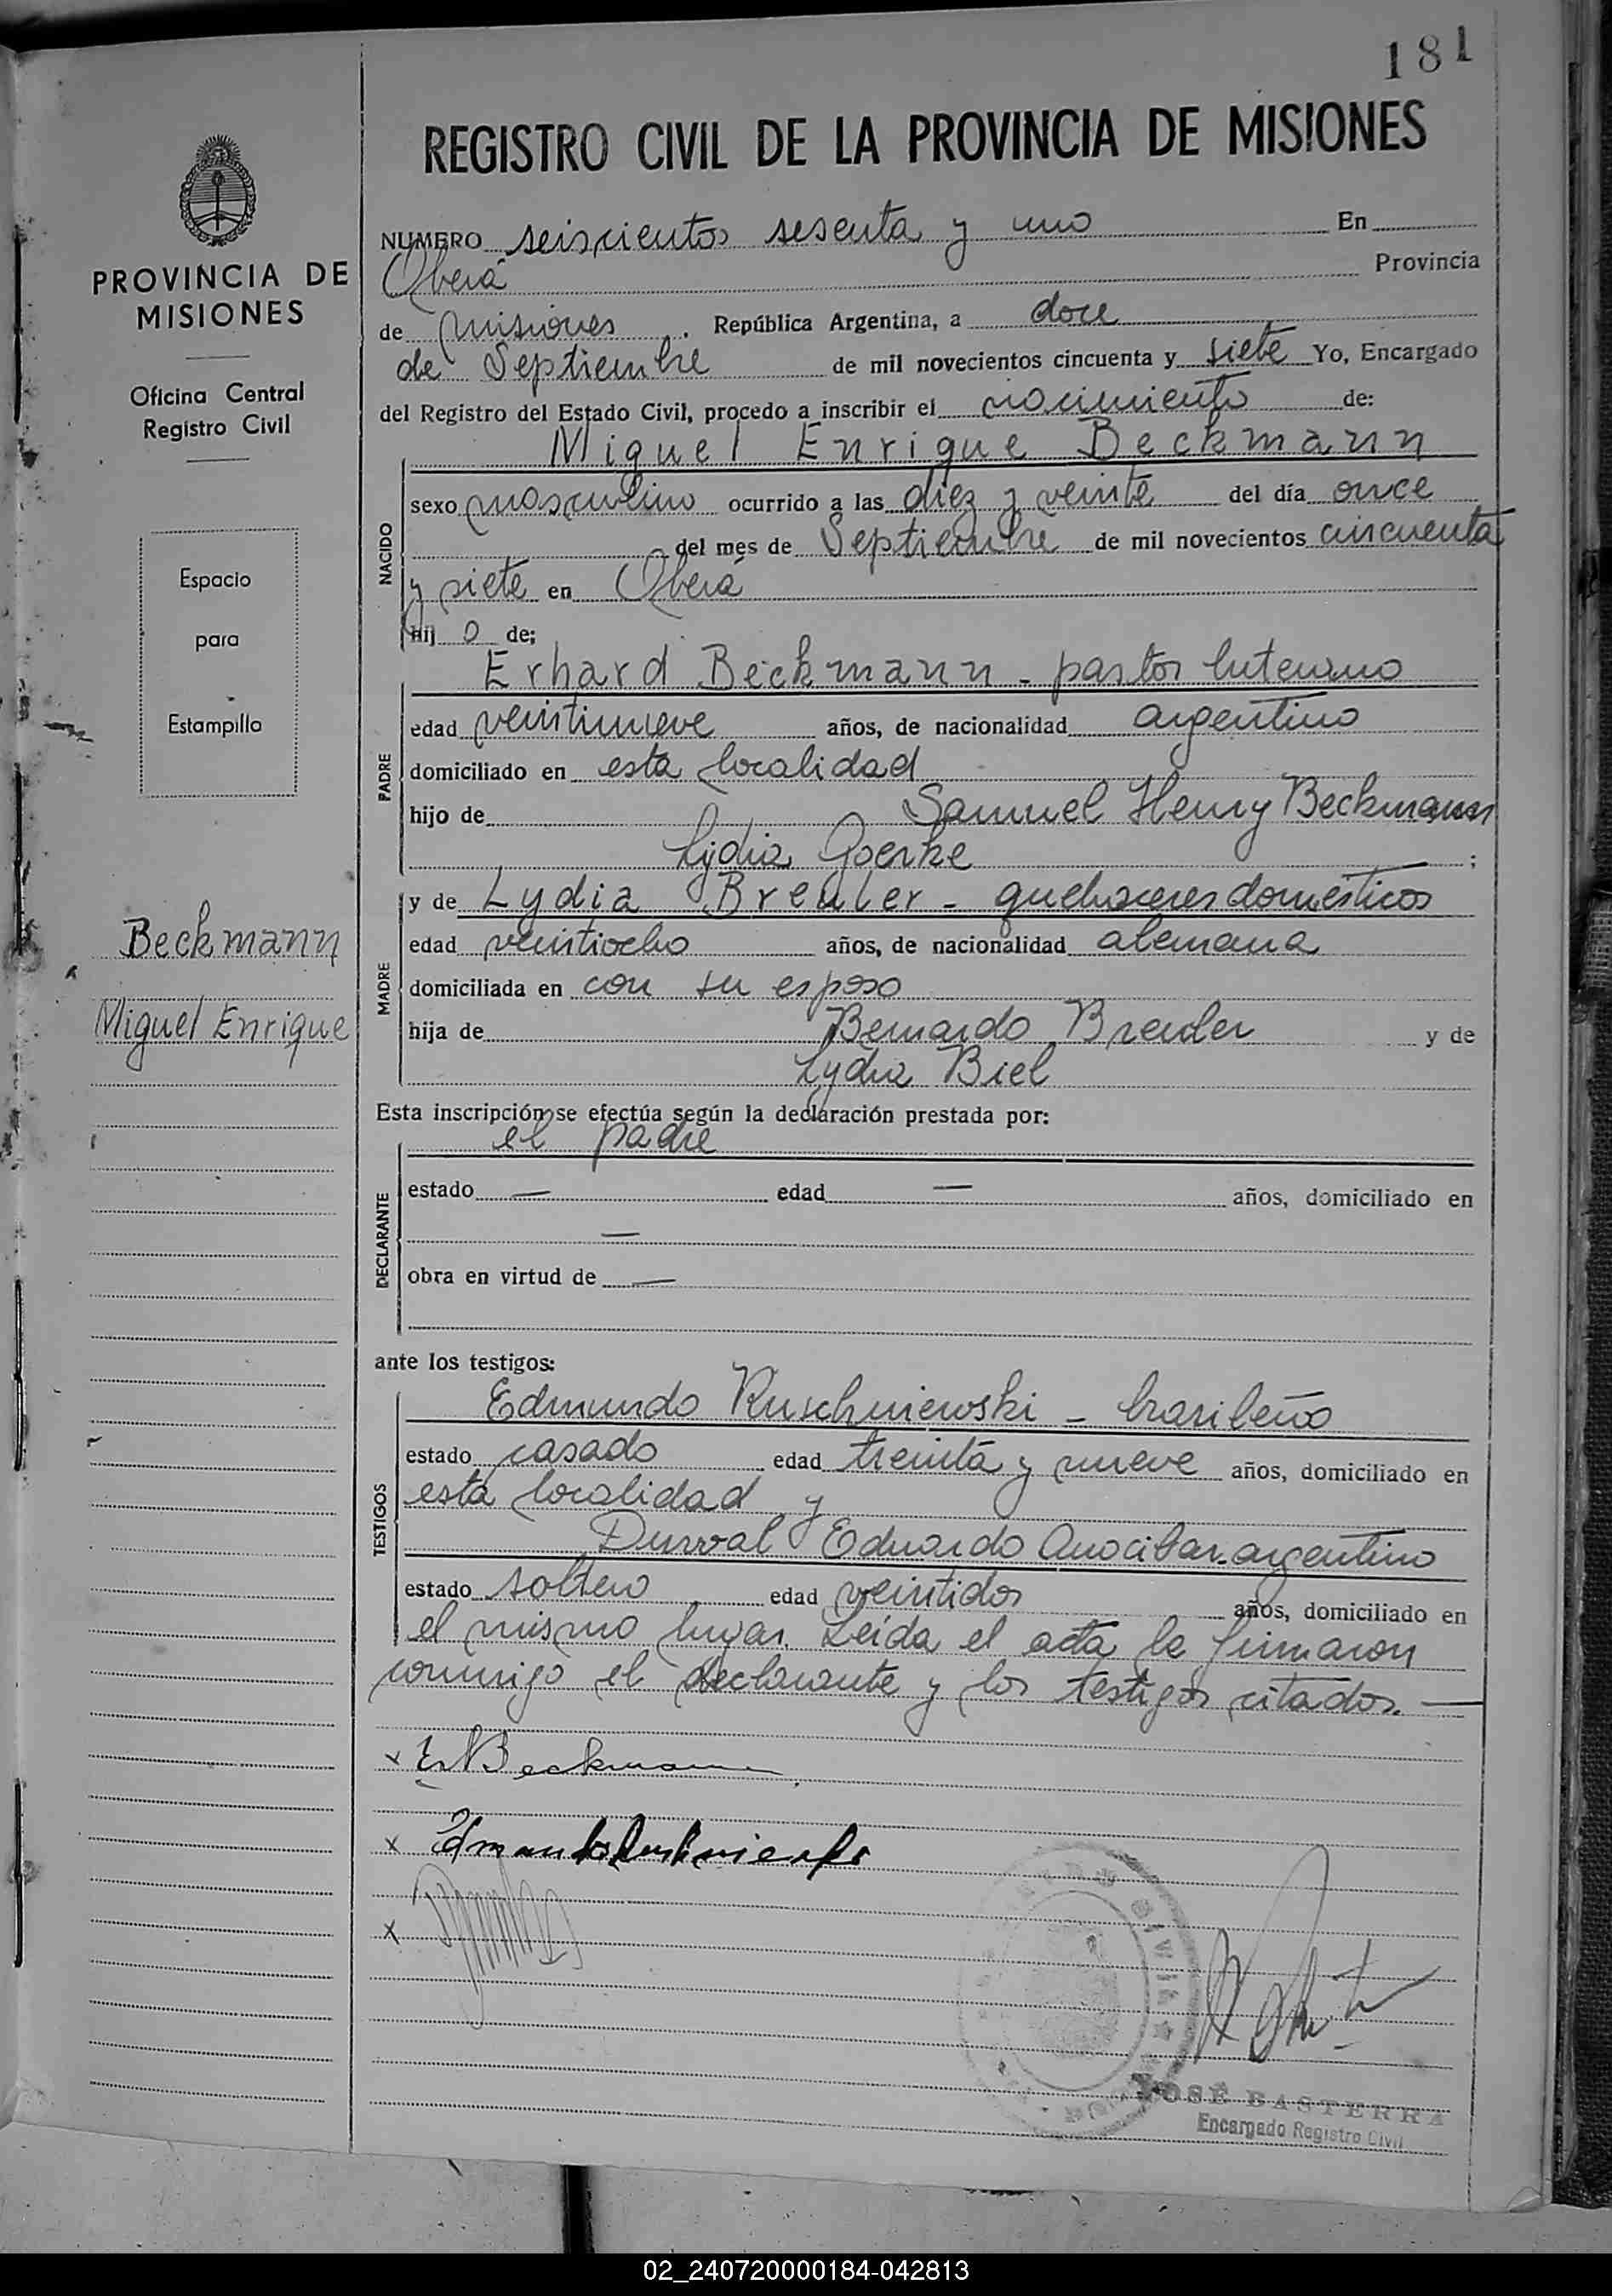 181
REGISTRO CIVIL DE LA PROVINCIA DE MISIONES
PROVINCIA DE
MISIONES
Oficina Central
Registro Civil
Espacio
para
Estampilla
Beckmann
Miguel Enrique
NUMERO seiscientos sesenta y uno En
Oberá Provincia
de Misiones. República Argentina, a doce
de Septiembre de mil novecientos cincuenta y siete Yo, Encargado
del Registro del Estado Civil, procedo a inscribir el nacimiento de:
Miguel Enrique Beckmann
NACIDO
sexo masculino ocurrido a las diez y veinte del día once
del mes de Septiembre de mil novecientos cincuenta
y siete en Oberá
hij o de;
Erhard Beckmann - pastor luterano
PADRE
edad veintinueve años, de nacionalidad argentino
domiciliado en esta localidad
hijo de Samuel Henry Beckmann
Lydia Goerke ;
y de Lydia Breuler - quehaceres domésticos
MADRE
edad veintiocho años, de nacionalidad alemana
domiciliada en con su esposo
hija de Bernardo Breuler y de
Lydia Biel
Esta inscripción se efectúa según la declaración prestada por:
el padre
DECLARANTE
estado — edad — años, domiciliado en
—
obra en virtud de —
ante los testigos:
Edmundo Kuschniewski - brasileño
TESTIGOS
estado casado edad treinta y nueve años, domiciliado en
esta localidad y
Durval Eduardo Anocibar - argentino
estado soltero edad veintidos años, domiciliado en
el mismo lugar. Leída el acta la firmaron
conmigo el declarante y los testigos citados. —
x E Beckmann
x
x
JOSÉ BASTERRA
Encargado Registro Civil
02_240720000184-042813